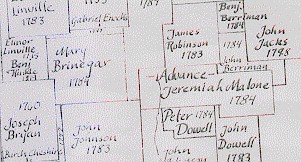 Linville
1783
Gabriel Enochs
Benj.
Berriman
1784
John
Jacks
1798
James
Robinson
1783
1784
John
Berriman
Elinor
Linville
Benj
Mary
Brinegar
1784
Advance
Jeremiah Malone
1784
1760
Joseph
Bryan
Burch Cheshire
John
Johnson
1783
Peter 1784
Dowell
John
Dowell
1783
John